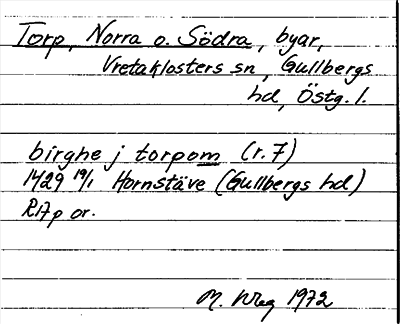 Torp, Norra o. Södra, byar,
Vretaklosters sn, Gullbergs
hd, Östg. l.
birghe j torpom (r. 7)
1429 19/1 Hornstäve (Gullbergs hd)
RAp or.
M. 1972